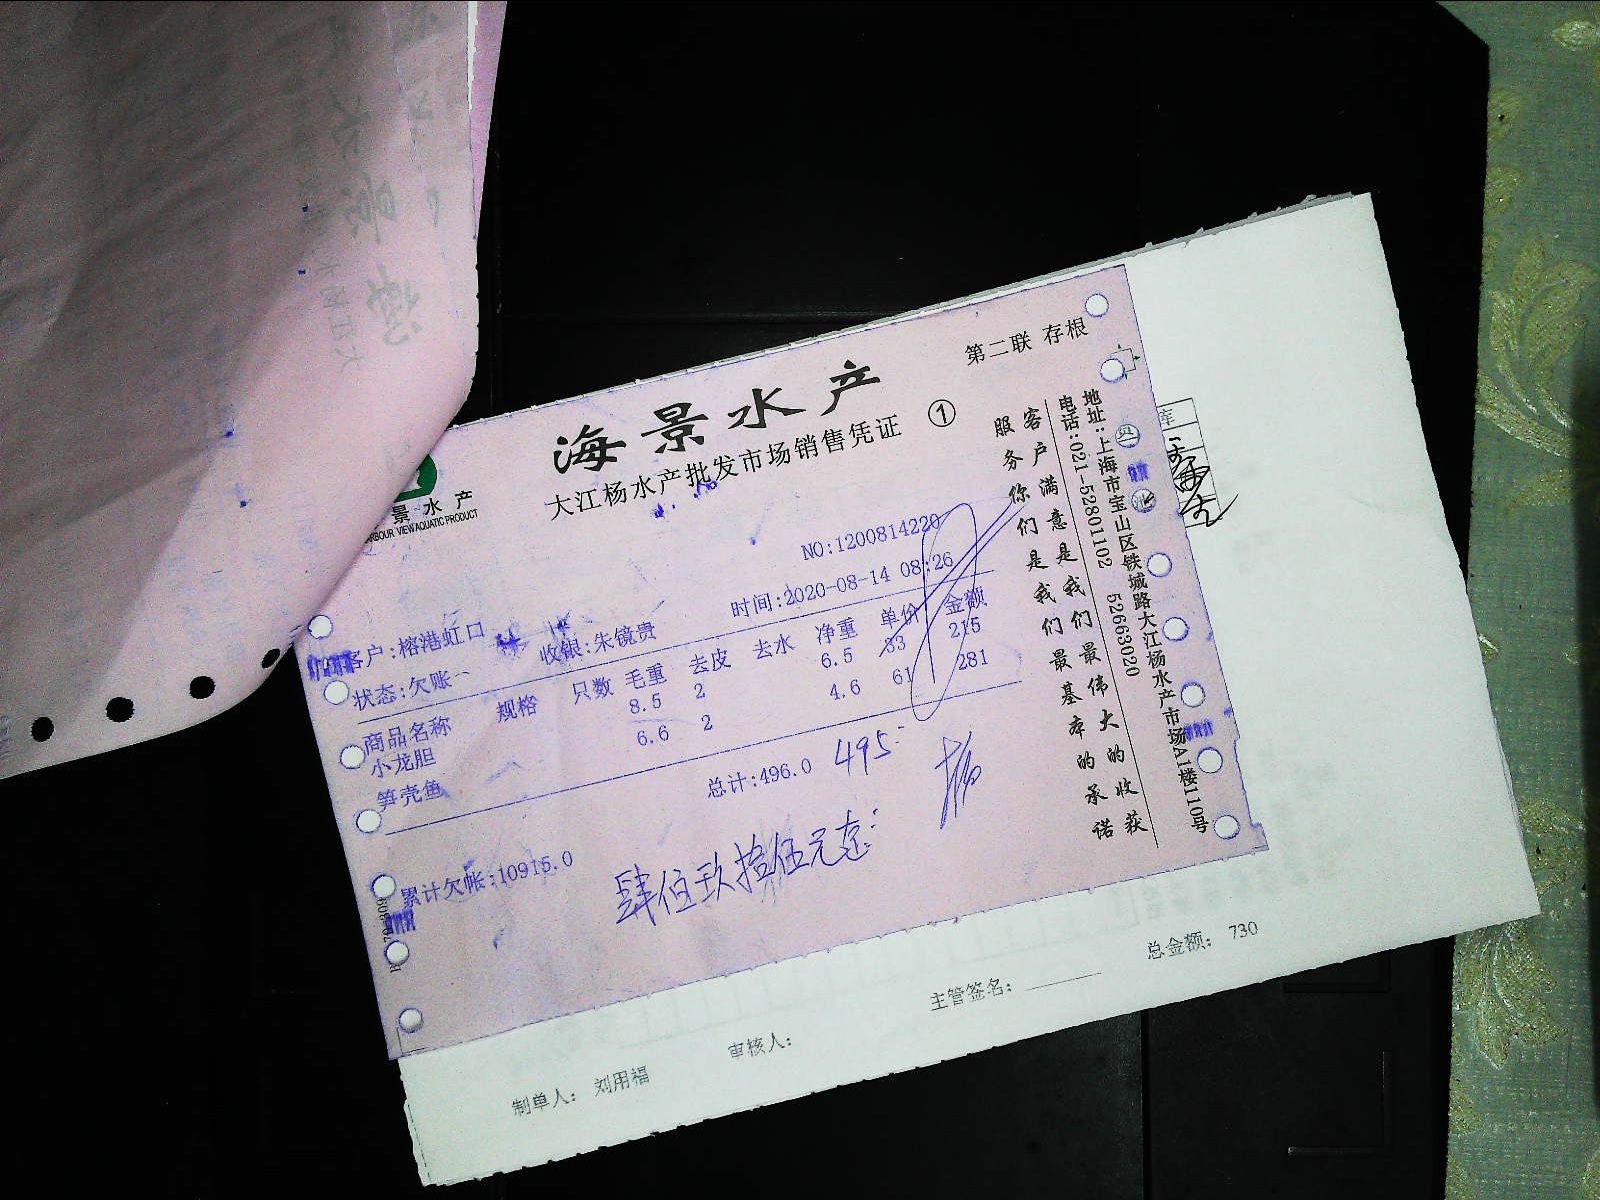 第二联 存根
海景水产
大江杨水产批发市场销售凭证 ①
景水产
RBOUR VIEW AQUATIC PRODUCT
NO:1200814220
时间:2020-08-14 08:26
客户:榕港虹口 收银:朱镜贵
状态:欠账
商品名称 规格 只数 毛重 去皮 去水 净重 单价 金额
小龙胆 8.5 2 6.5 33 215
笋壳鱼 6.6 2 4.6 61 281
总计:496.0 495
累计欠帐:10915.0
肆佰玖拾伍元
客户满意是我们最伟大的收获
服务你们是我们最基本的承诺
地址:上海市宝山区铁城路大江杨水产市场A1楼110号
电话:021-52801102 52663020
库
总金额: 730
主管签名:
审核人:
制单人: 刘用福